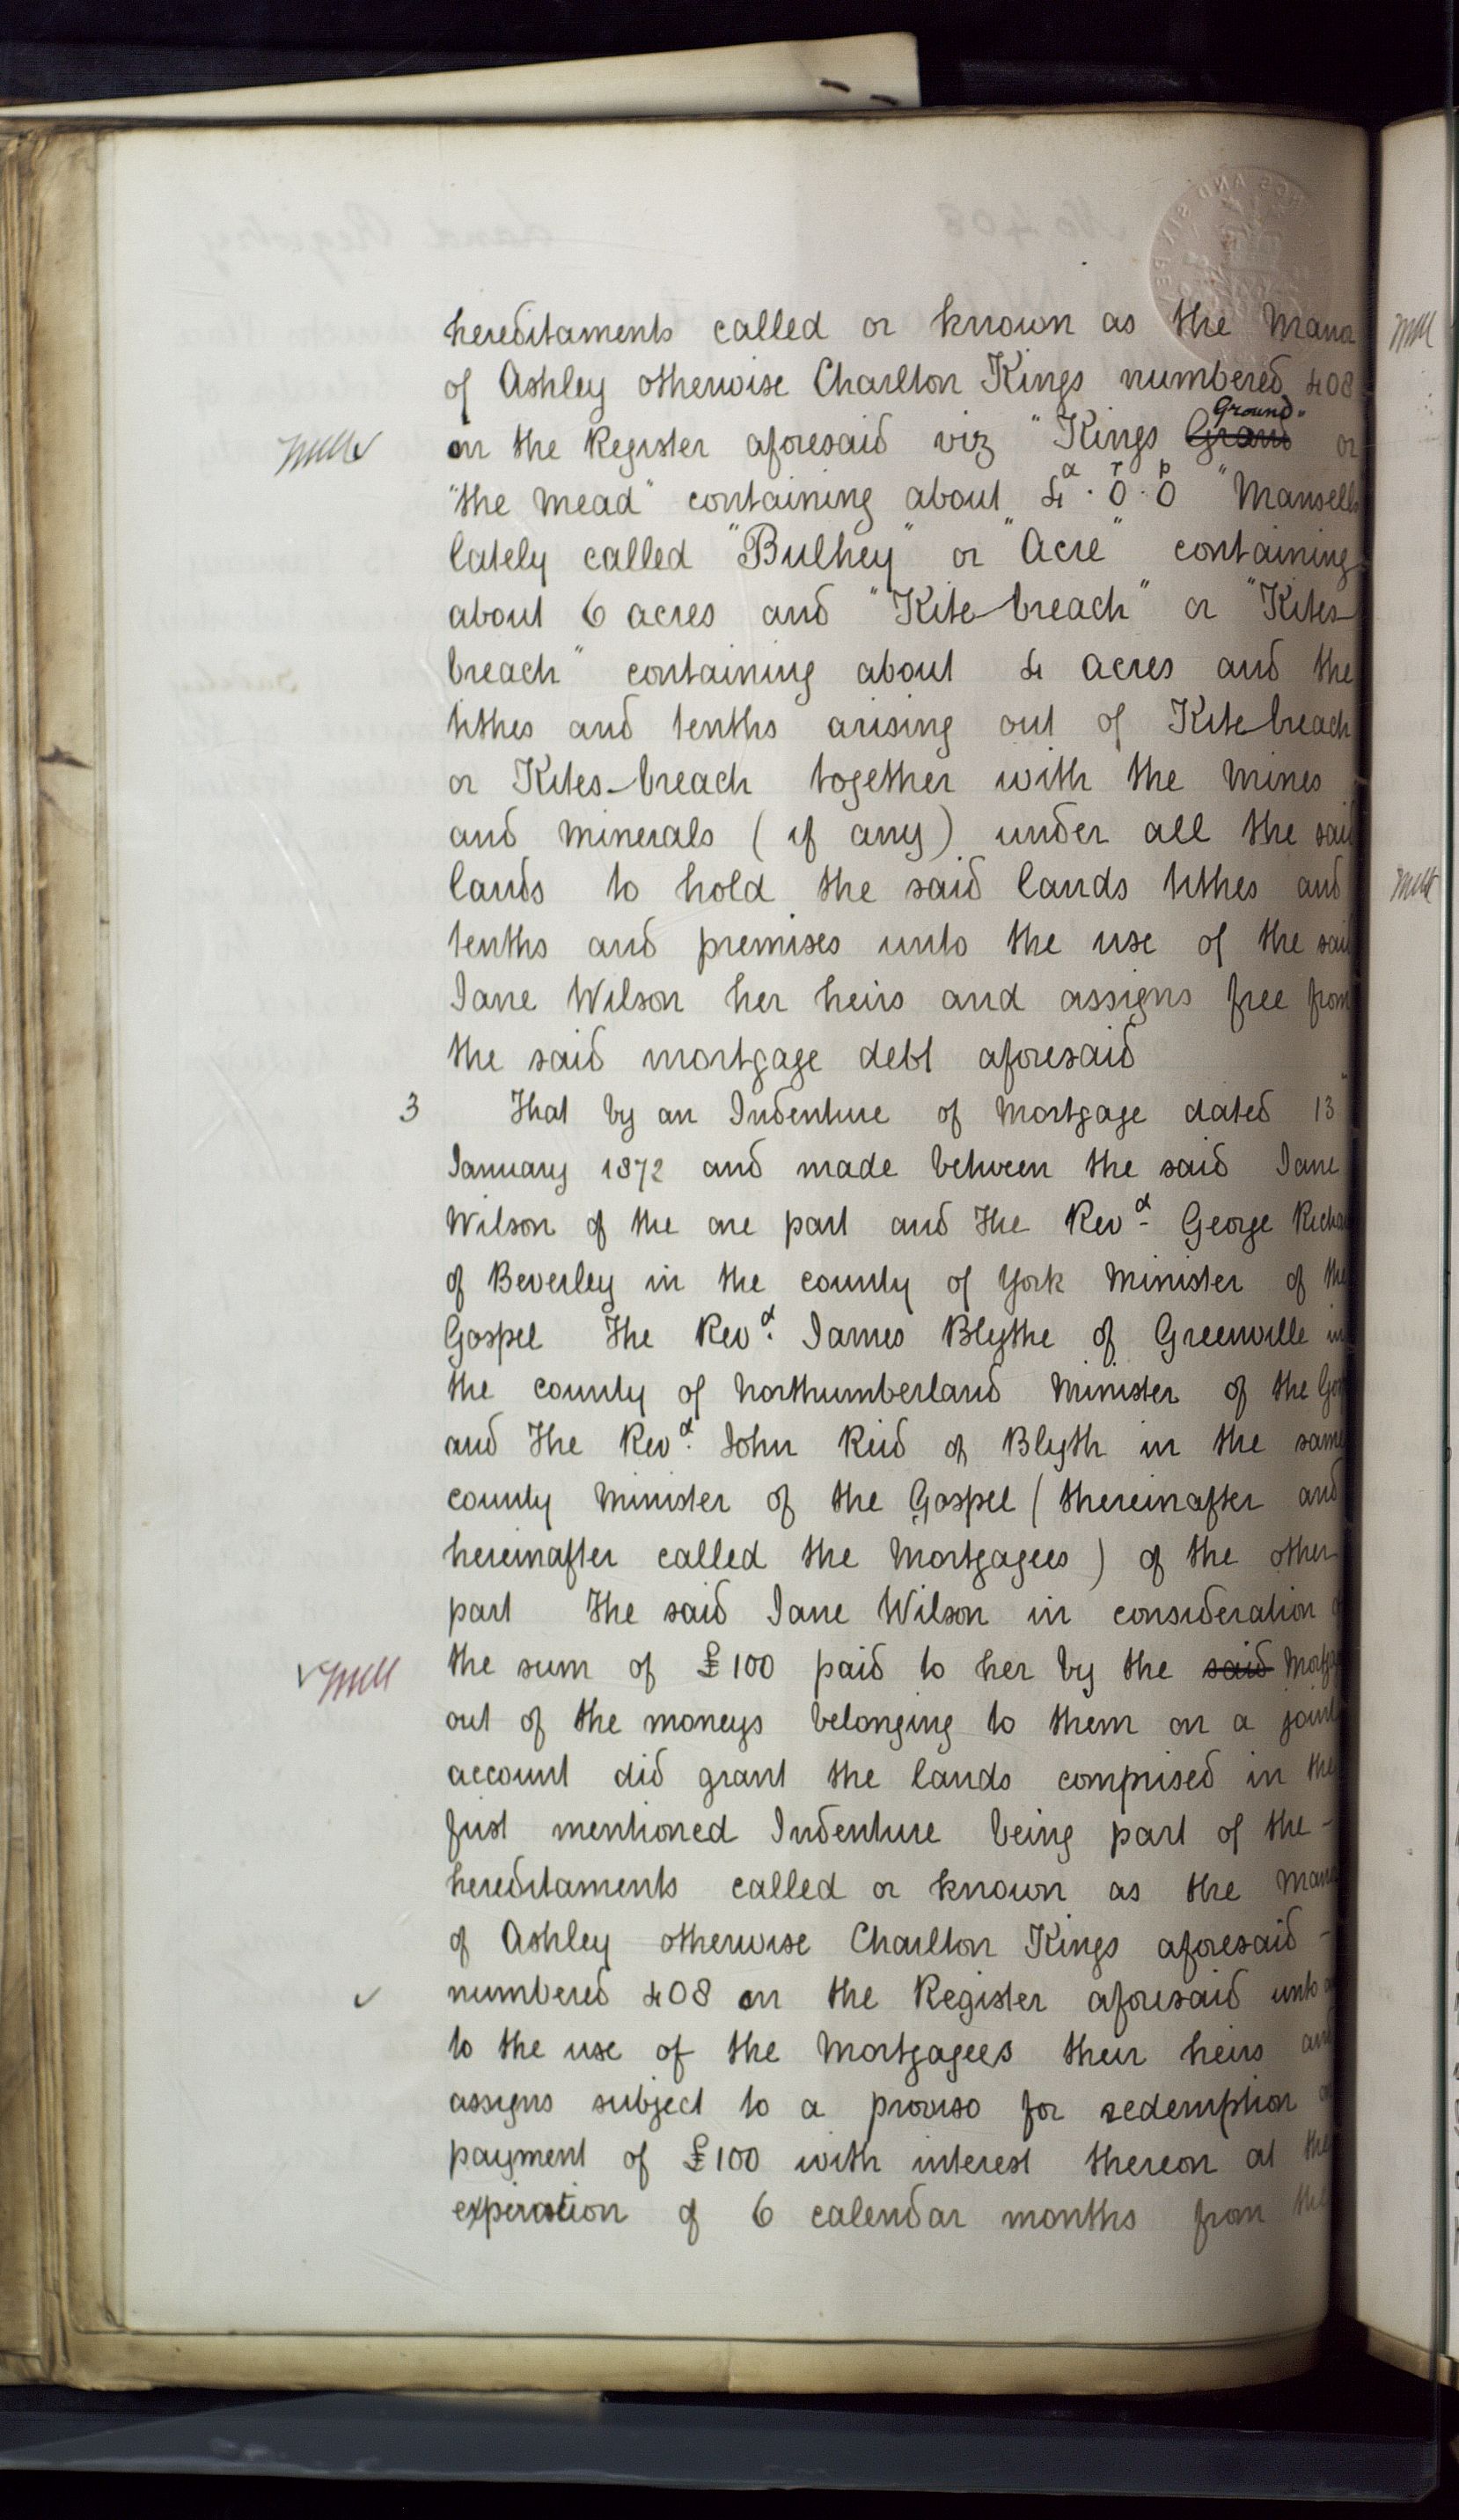 hereditaments called or known as the Mano
of Ashley otherwise Charlton Kings numbered 408
on the Register aforesaid viz "Kings Grand Ground" or
"the Mead" containing about 4a. 0r. 0p "Mansells
lately called "Bulhey" or "Acre" containing
about 6 acres and "Kite-breach" or "Kites-
breach" containing about 4 acres and the
tithes and tenths arising out of Kite-breach
or Kites-breach together with the Mines
and Minerals (if any) under all the said
lands to hold the said lands tithes and
tenths and premises unto the use of the said
Jane Wilson her heirs and assigns free from
the said mortgage debt aforesaid
3 That by an Indenture of Mortgage dated 13
January 1872 and made between the said Jane
Wilson of the one part and The Revd. George
of Beverley in the county of York Minister of the
Gospel The Revd. James Blythe of Greenville in
the county of Northumberland Minister of the
and The Revd. John Reid of Blyth in the same
county Minister of the Gospel (thereinafter and
hereinafter called the Mortgagees) of the other
part The said Jane Wilson in consideration
the sum of £100 paid to her by the said
out of the moneys belonging to them on a joint
account did grant the lands comprised in the
first mentioned Indenture being part of the -
hereditaments called or known as the
of Ashley otherwise Charlton Kings aforesaid -
numbered 408 on the Register aforesaid unto
to the use of the Mortgagees their heirs and
assigns subject to a proviso for redemption
payment of £100 with interest thereon at the
expiration of 6 calendar months from the